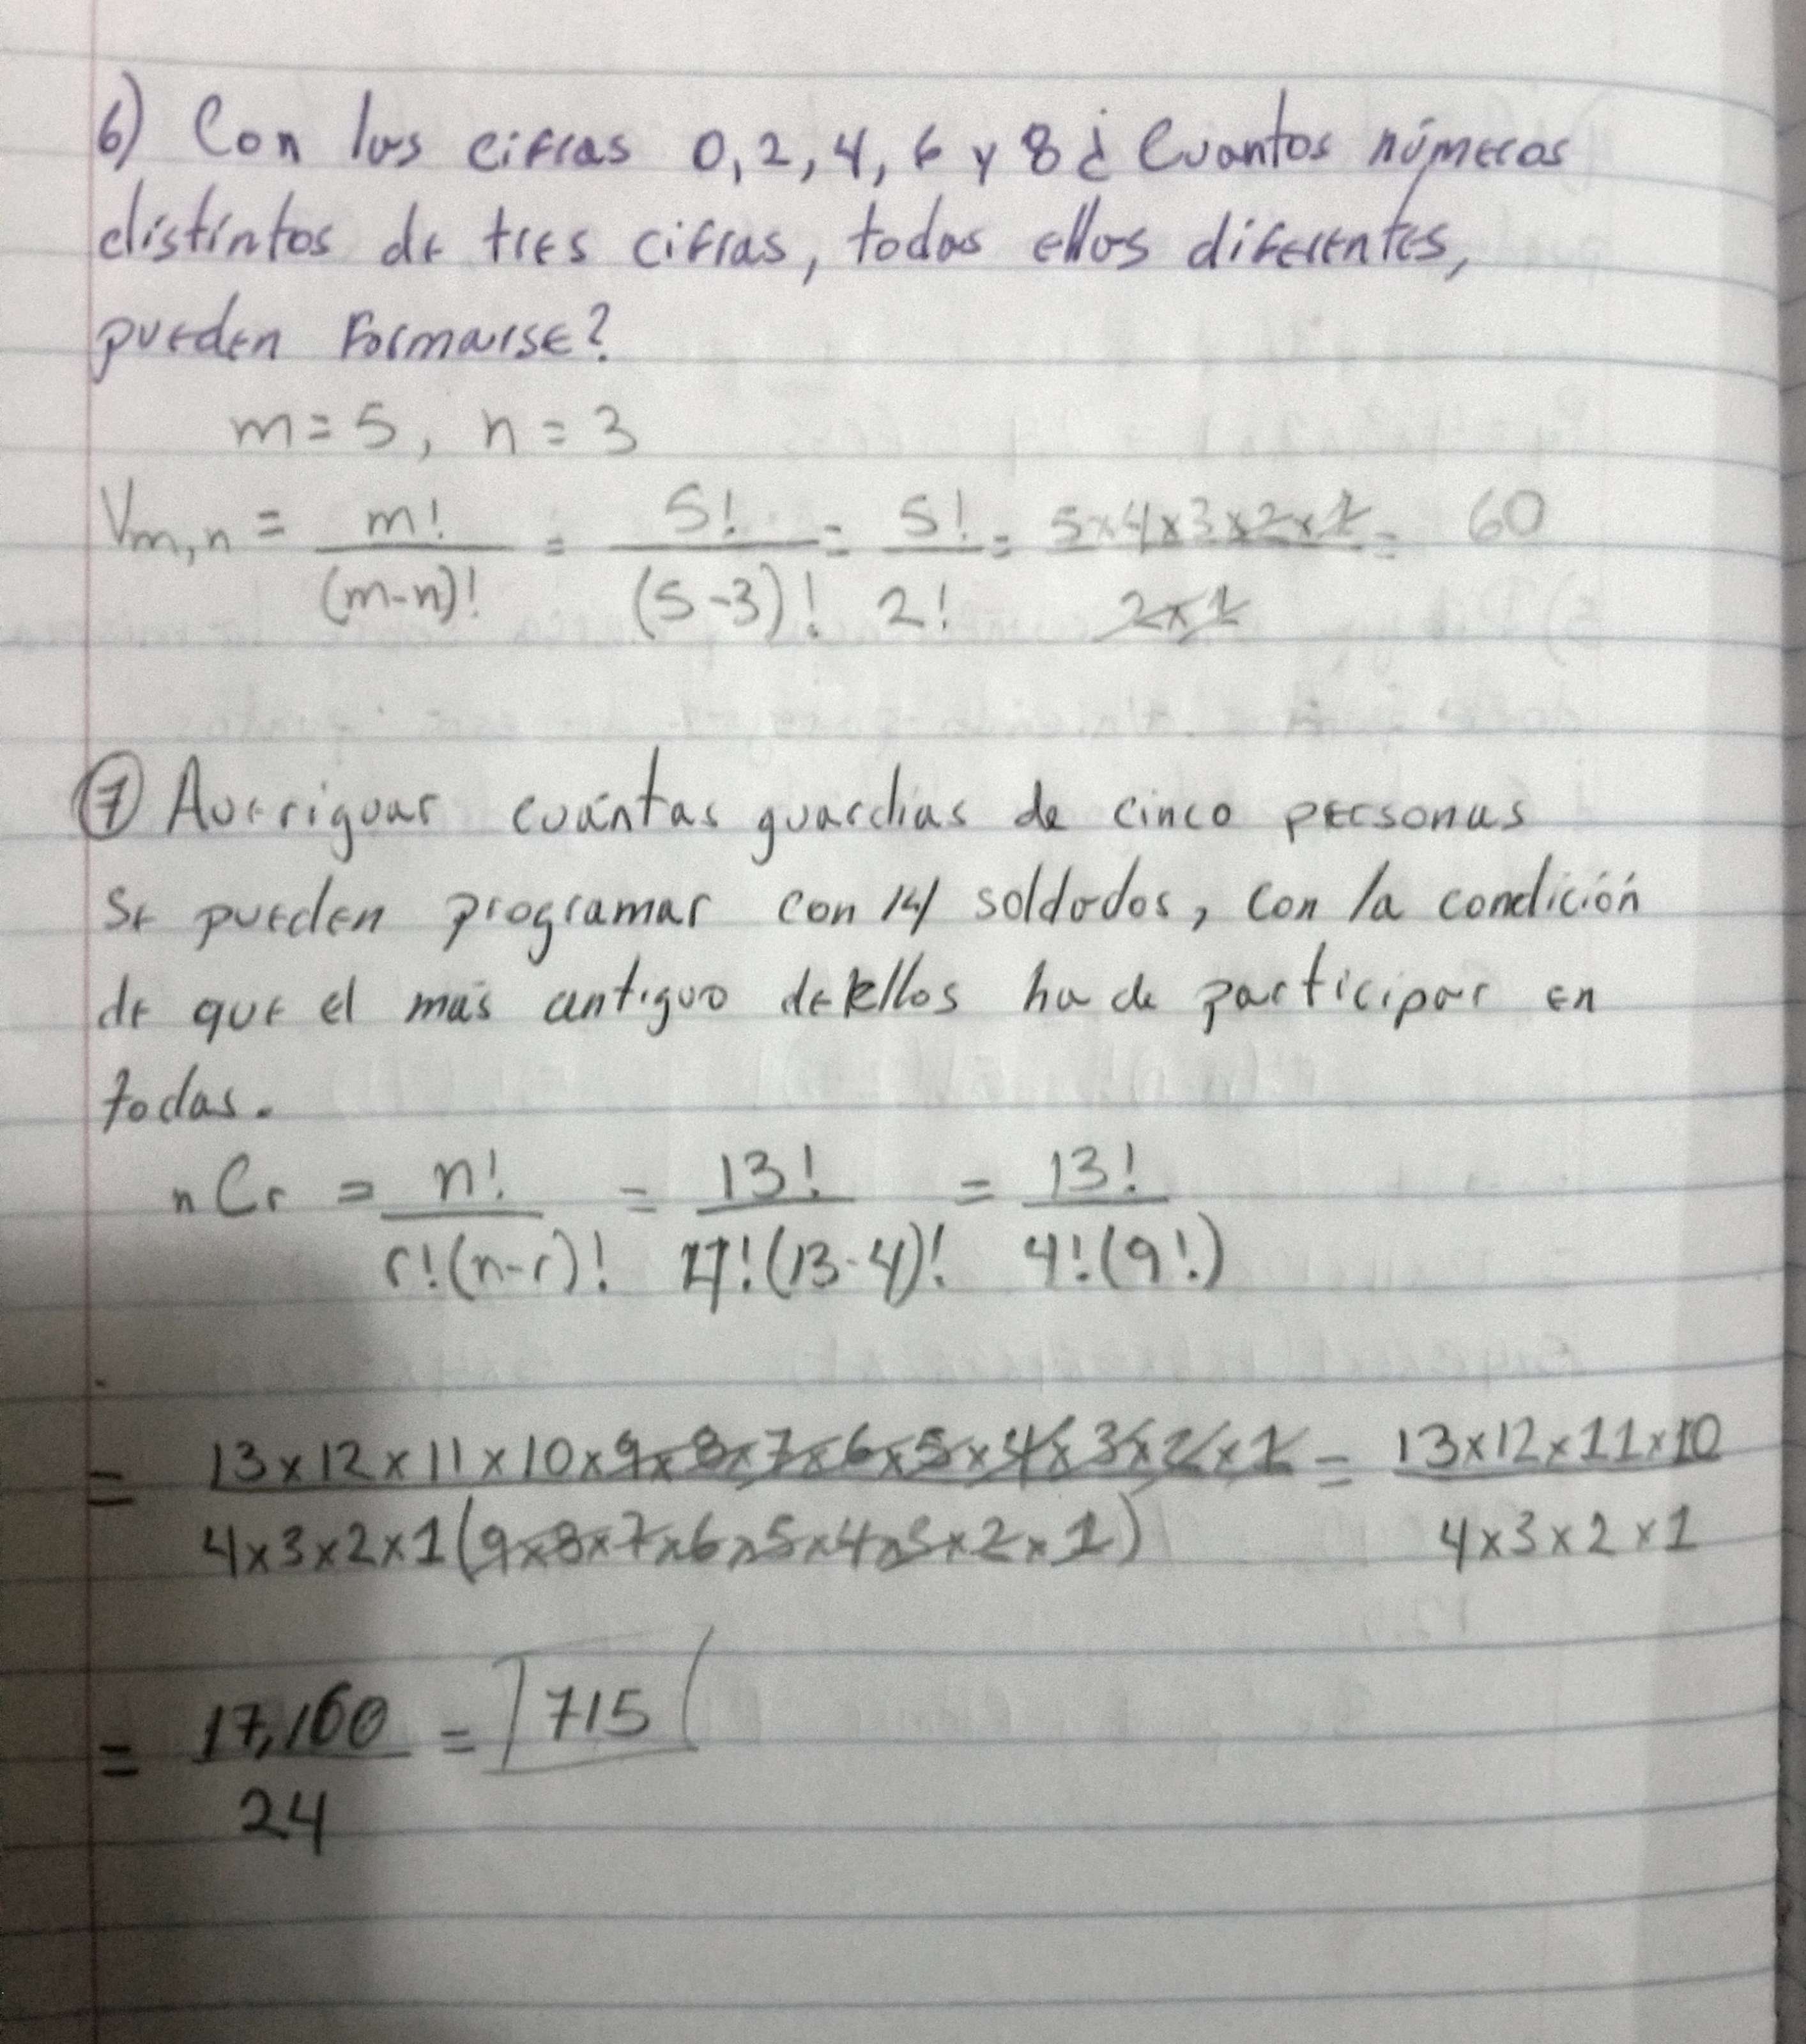 6) Con las cifras 0,2,4,6 y 8 ¿ Cuantos números
distintos de tres cifras, todos ellos diferentes,
pueden Formarse?
m = 5, n = 3
Vm,n = m!/(m-n)! = 5!/(5-3)! = 5!/2! = 5x4x3x2x1/2x1 = 60
7) Averiguar cuántas guardias de cinco personas
se pueden programar con 14 soldados, con la condición
de que el más antiguo de ellos ha de participar en
todas.
nCr = n!/r!(n-r)! = 13!/4!(13-4)! = 13!/4!(9!)
= 13x12x11x10x9x8x7x6x5x4x3x2x1/4x3x2x1(9x8x7x6x5x4x3x2x1) = 13x12x11x10/4x3x2x1
= 17,160/24 = 715